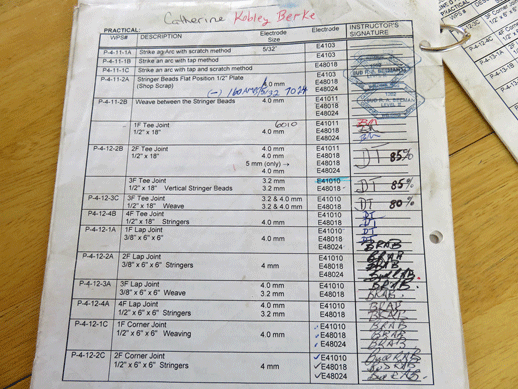 Catherine Kobley Berke
PRACTICAL:
WPS# DESCRIPTION Electrode Size Electrode INSTRUCTOR'S SIGNATURE
P-4-11-1A Strike an Arc with scratch method 5/32" E4103
P-4-11-1B Strike an arc with tap method E4103
P-4-11-1C Strike an arc with tap and scratch method E48018
P-4-11-2A Stringer Beads Flat Position 1/2" Plate 4.0 mm E48018
(Shop Scrap) E48024
7024
P-4-11-2B Weave between the Stringer Beads 4.0 mm E41011
E48018
E48024
1F Tee Joint 6010 E41011
1/2" x 18" 4.0 mm E48018
E48024
P-4-12-2B 2F Tee Joint 4.0 mm E41011
1/2" x 18" 4.0 mm E48018 DT 85%
5 mm (only) → E48018
4.0 mm E48024
3F Tee Joint 3.2 mm E41010
1/2" x 18" Vertical Stringer Beads 3.2 mm E48018 DT 85%
P-4-12-3C 3F Tee Joint 3.2 & 4.0 mm E41010
1/2" x 18" Weave 3.2 & 4.0 mm E48018 DT 80%
P-4-12-4B 4F Tee Joint E41010 DT
1/2" x 18" Stringers 4.0 mm E48018 DT
P-4-12-1A 1F Lap Joint E41010 DT
3/8" x 6" x 6" 4.0 mm E48018 DT
E48024 BRAB
P-4-12-2A 2F Lap Joint E41010 BRAB
3/8" x 6" x 6" Stringers 4 mm E48018 BRAB
E48024
P-4-12-3A 3F Lap Joint 4.0 mm E41010 BRAB
3/8" x 6" x 6" Weave 3.2 mm E48018 BRAB
P-4-12-4A 4F Lap Joint 4.0 mm E41010 BRAB
1/2" x 6" x 6" Stringers 3.2 mm E48018 BRAB
P-4-12-1C 1F Corner Joint E41010 BRAB
1/2" x 6" x 6" Weaving 4.0 mm E48018 BRAB
E48024 BRAB
P-4-12-2C 2F Corner Joint ✓E41010
1/2" x 6" x 6" Stringers 4 mm ✓E48018
✓E48024